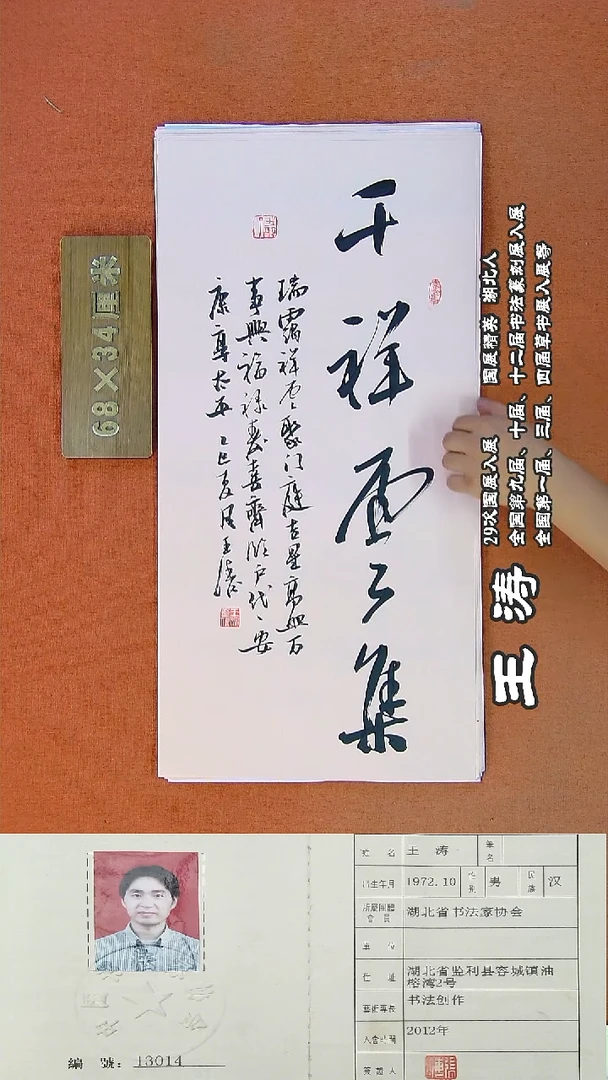 千祥云集
瑞霭祥云聚门庭吉星高照万
事兴福禄寿喜齐临户代代安
康享太平 乙巳夏月王涛
68×34厘米
国展精英 湖北人
29次国展入展
全国第九届、十届、十二届书法篆刻展入展
全国第一届、三届、四届草书展入展等
王涛
編 號：13014
姓 名 王 涛 筆名
出生年月 1972.10 性别 男 民族 汉
所屬團體會員 湖北省书法家协会
單 位
住 址 湖北省监利县容城镇油
榨湾2号
藝術專長 书法创作
入會時間 2012年
簽證人